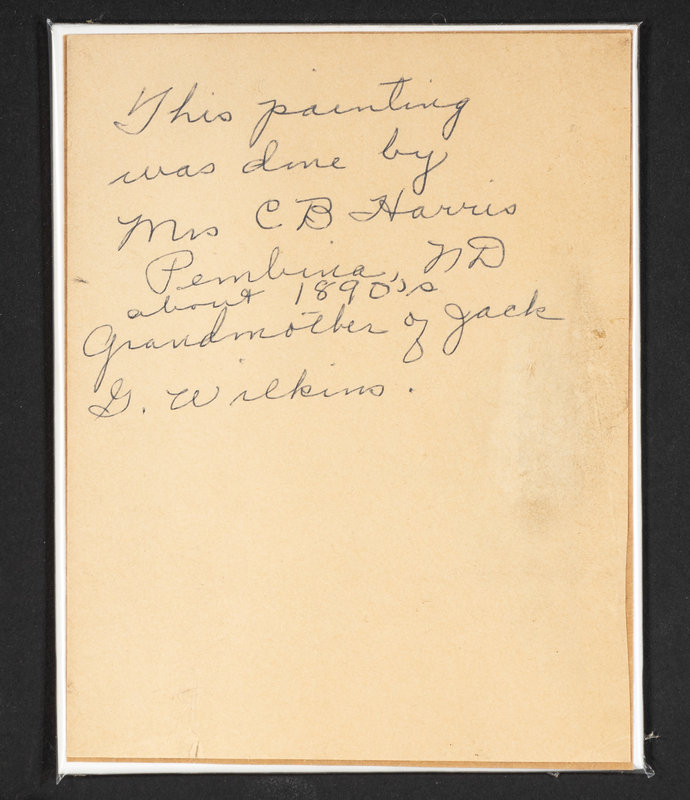 This painting
was done by
Mrs C B Harris
Pembina, ND
about 1890's
Grandmother of Jack
G. Wilkins.